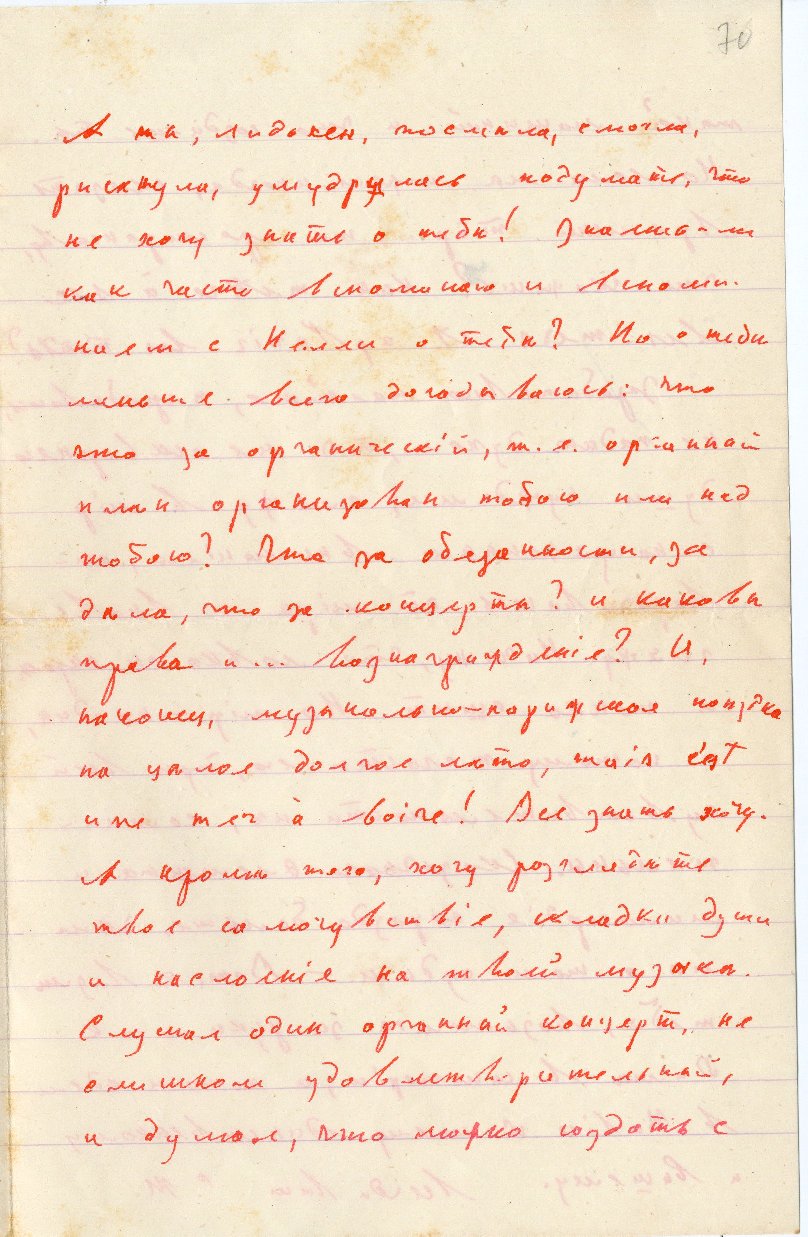 70
А ты, людоѣд, посмѣла, смогла,
рискнула, умудрилась подумать, что
не хочу знать о тебѣ! Знаешь-ли
как часто вспоминаю и вспоми-
наем с Нелли о тебѣ? Но о тебѣ
меньше всего догадываюсь: что
это за органическій, т. е. органный
план организован тобою или над
тобою? Что за обязанности, за
дѣла, что за концерты? и каковы
права и ... вознагражденіе? И,
наконец, музыкально-парижская поѣздка
на цѣлое долгое лѣто, mais c'est
une mer à boire! Все знать хочу.
А кромѣ того, хочу разглядѣть
твое самочувствіе, складки души
и наслоеніе на твоей музыкѣ.
Слушал один органный концерт, не
слишком удовлетворительный,
и думал, что можно создать с